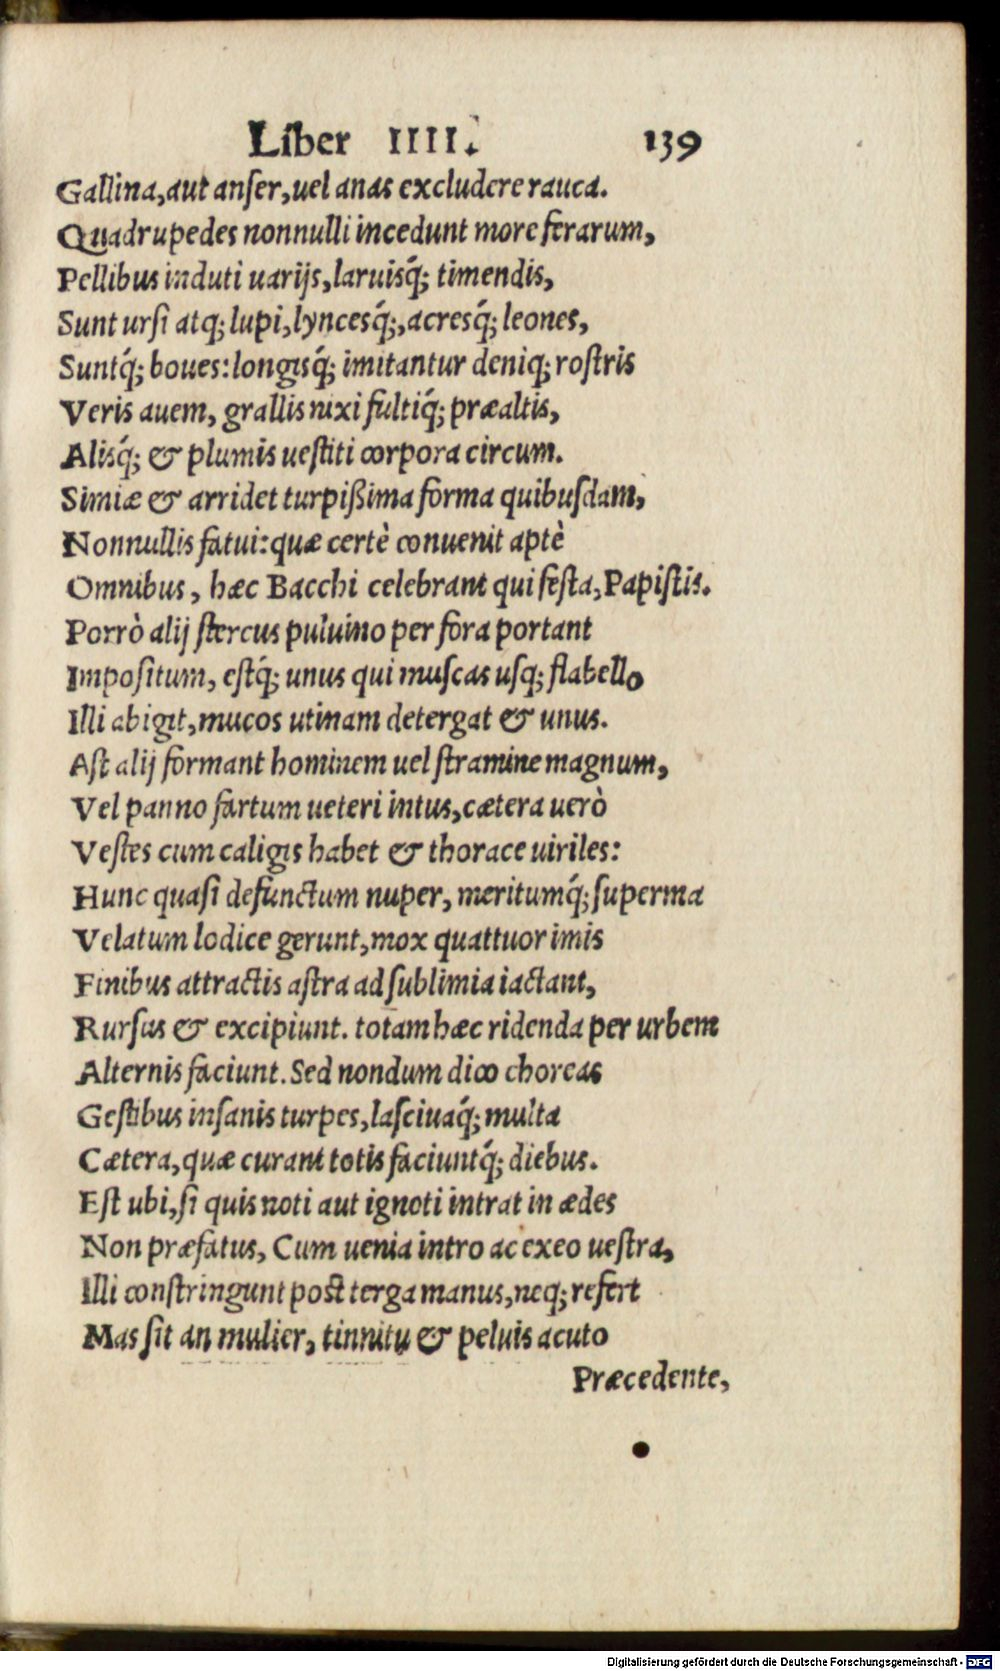 Liber IIII. 139
Gallina, aut anſer, uel anas excludere rauca.
Quadrupedes nonnulli incedunt more ferarum,
Pellibus induti uarijs, laruisq́; timendis,
Sunt urſi atq; lupi, lyncesq́;, acresq́; leones,
Suntq́; boues: longisq́; imitantur deniq; roſtris
Veris auem, grallis nixi fultiq́; præaltis,
Alisq́; & plumis ueſtiti corpora circum.
Simiæ & arridet turpißima forma quibuſdam,
Nonnullis fatui: quæ certè conuenit aptè
Omnibus, hæc Bacchi celebrant qui feſta, Papiſtis.
Porrò alij ſtercus puluino per fora portant
Impoſitum, eſtq́; unus qui muſcas uſq; flabello
Illi abigit, mucos utinam detergat & unus.
Aſt alij formant hominem uel ſtramine magnum,
Vel panno fartum ueteri intus, cætera uerò
Veſtes cum caligis habet & thorace uiriles:
Hunc quaſi defunctum nuper, meritumq́; ſuperma
Velatum lodice gerunt, mox quattuor imis
Finibus attractis aſtra ad ſublimia iactant,
Rurſus & excipiunt. totam hæc ridenda per urbem
Alternis faciunt. Sed nondum dico choreas
Geſtibus inſanis turpes, laſciuaq́; multa
Cætera, quæ curant totis faciuntq́; diebus.
Eſt ubi, ſi quis noti aut ignoti intrat in ædes
Non præfatus, Cum uenia intro ac exeo ueſtra,
Illi conſtringunt poſt terga manus, neq; refert
Mas ſit an mulier, tinnitu & peluis acuto
Præcedente,
Digitalisierung gefördert durch die Deutsche Forschungsgemeinschaft - DFG